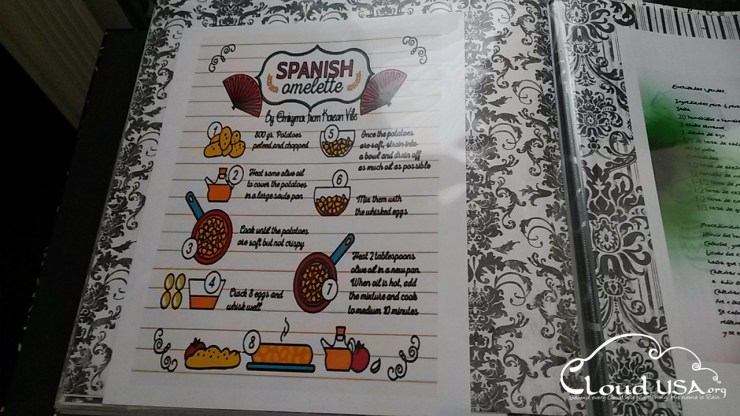 SPANISH
omelette
By Emiymar from Korean Vibs
1
800 gr. Potatoes
peleed and chopped
2
Heat some olive oil
to cover the potatoes
in a large saute pan
3
Cook until the potatoes
are soft but not crispy
4
Crack 8 eggs and
whisk well
5
Once the potatoes
are soft, strain into
a bowl and drain off
as much oil as possible
6
Mix them with
the whisked eggs
7
Heat 2 tablespoons
olive oil in a new pan
When oil is hot, add
the mixture and cook
to medium 10 minutes
8
Enchiladas Verdes
Ingredientes para
20
Cloud USA.org
Behind every Cloud